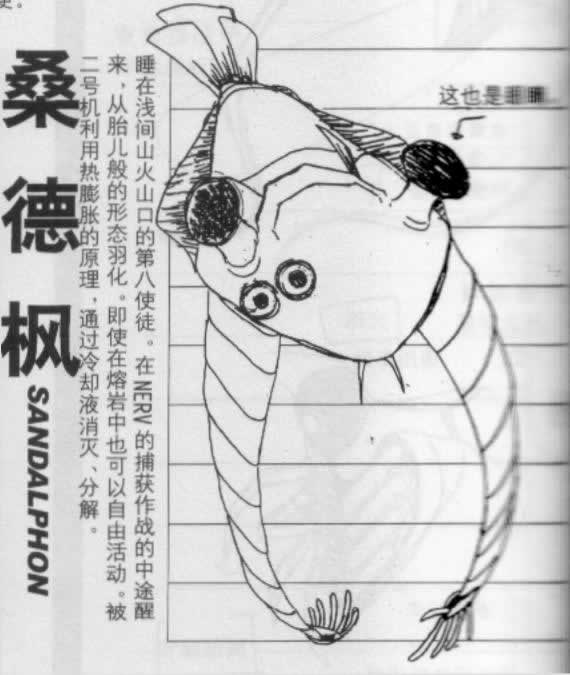 史。
桑德枫
SANDALPHON
睡在浅间山火山口的第八使徒。在NERV的捕获作战的中途醒
来，从胎儿般的形态羽化。即使在熔岩中也可以自由活动。被
二号机利用热膨胀的原理，通过冷却液消灭、分解。
这也是眼睛